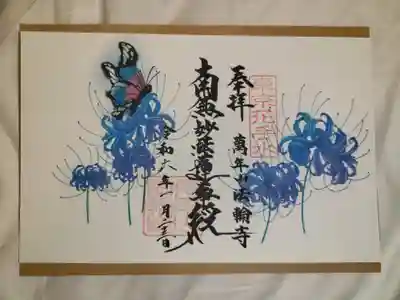 奉拝
萬年山法輪寺
南無妙法蓮華経
令和六年一月二十三日